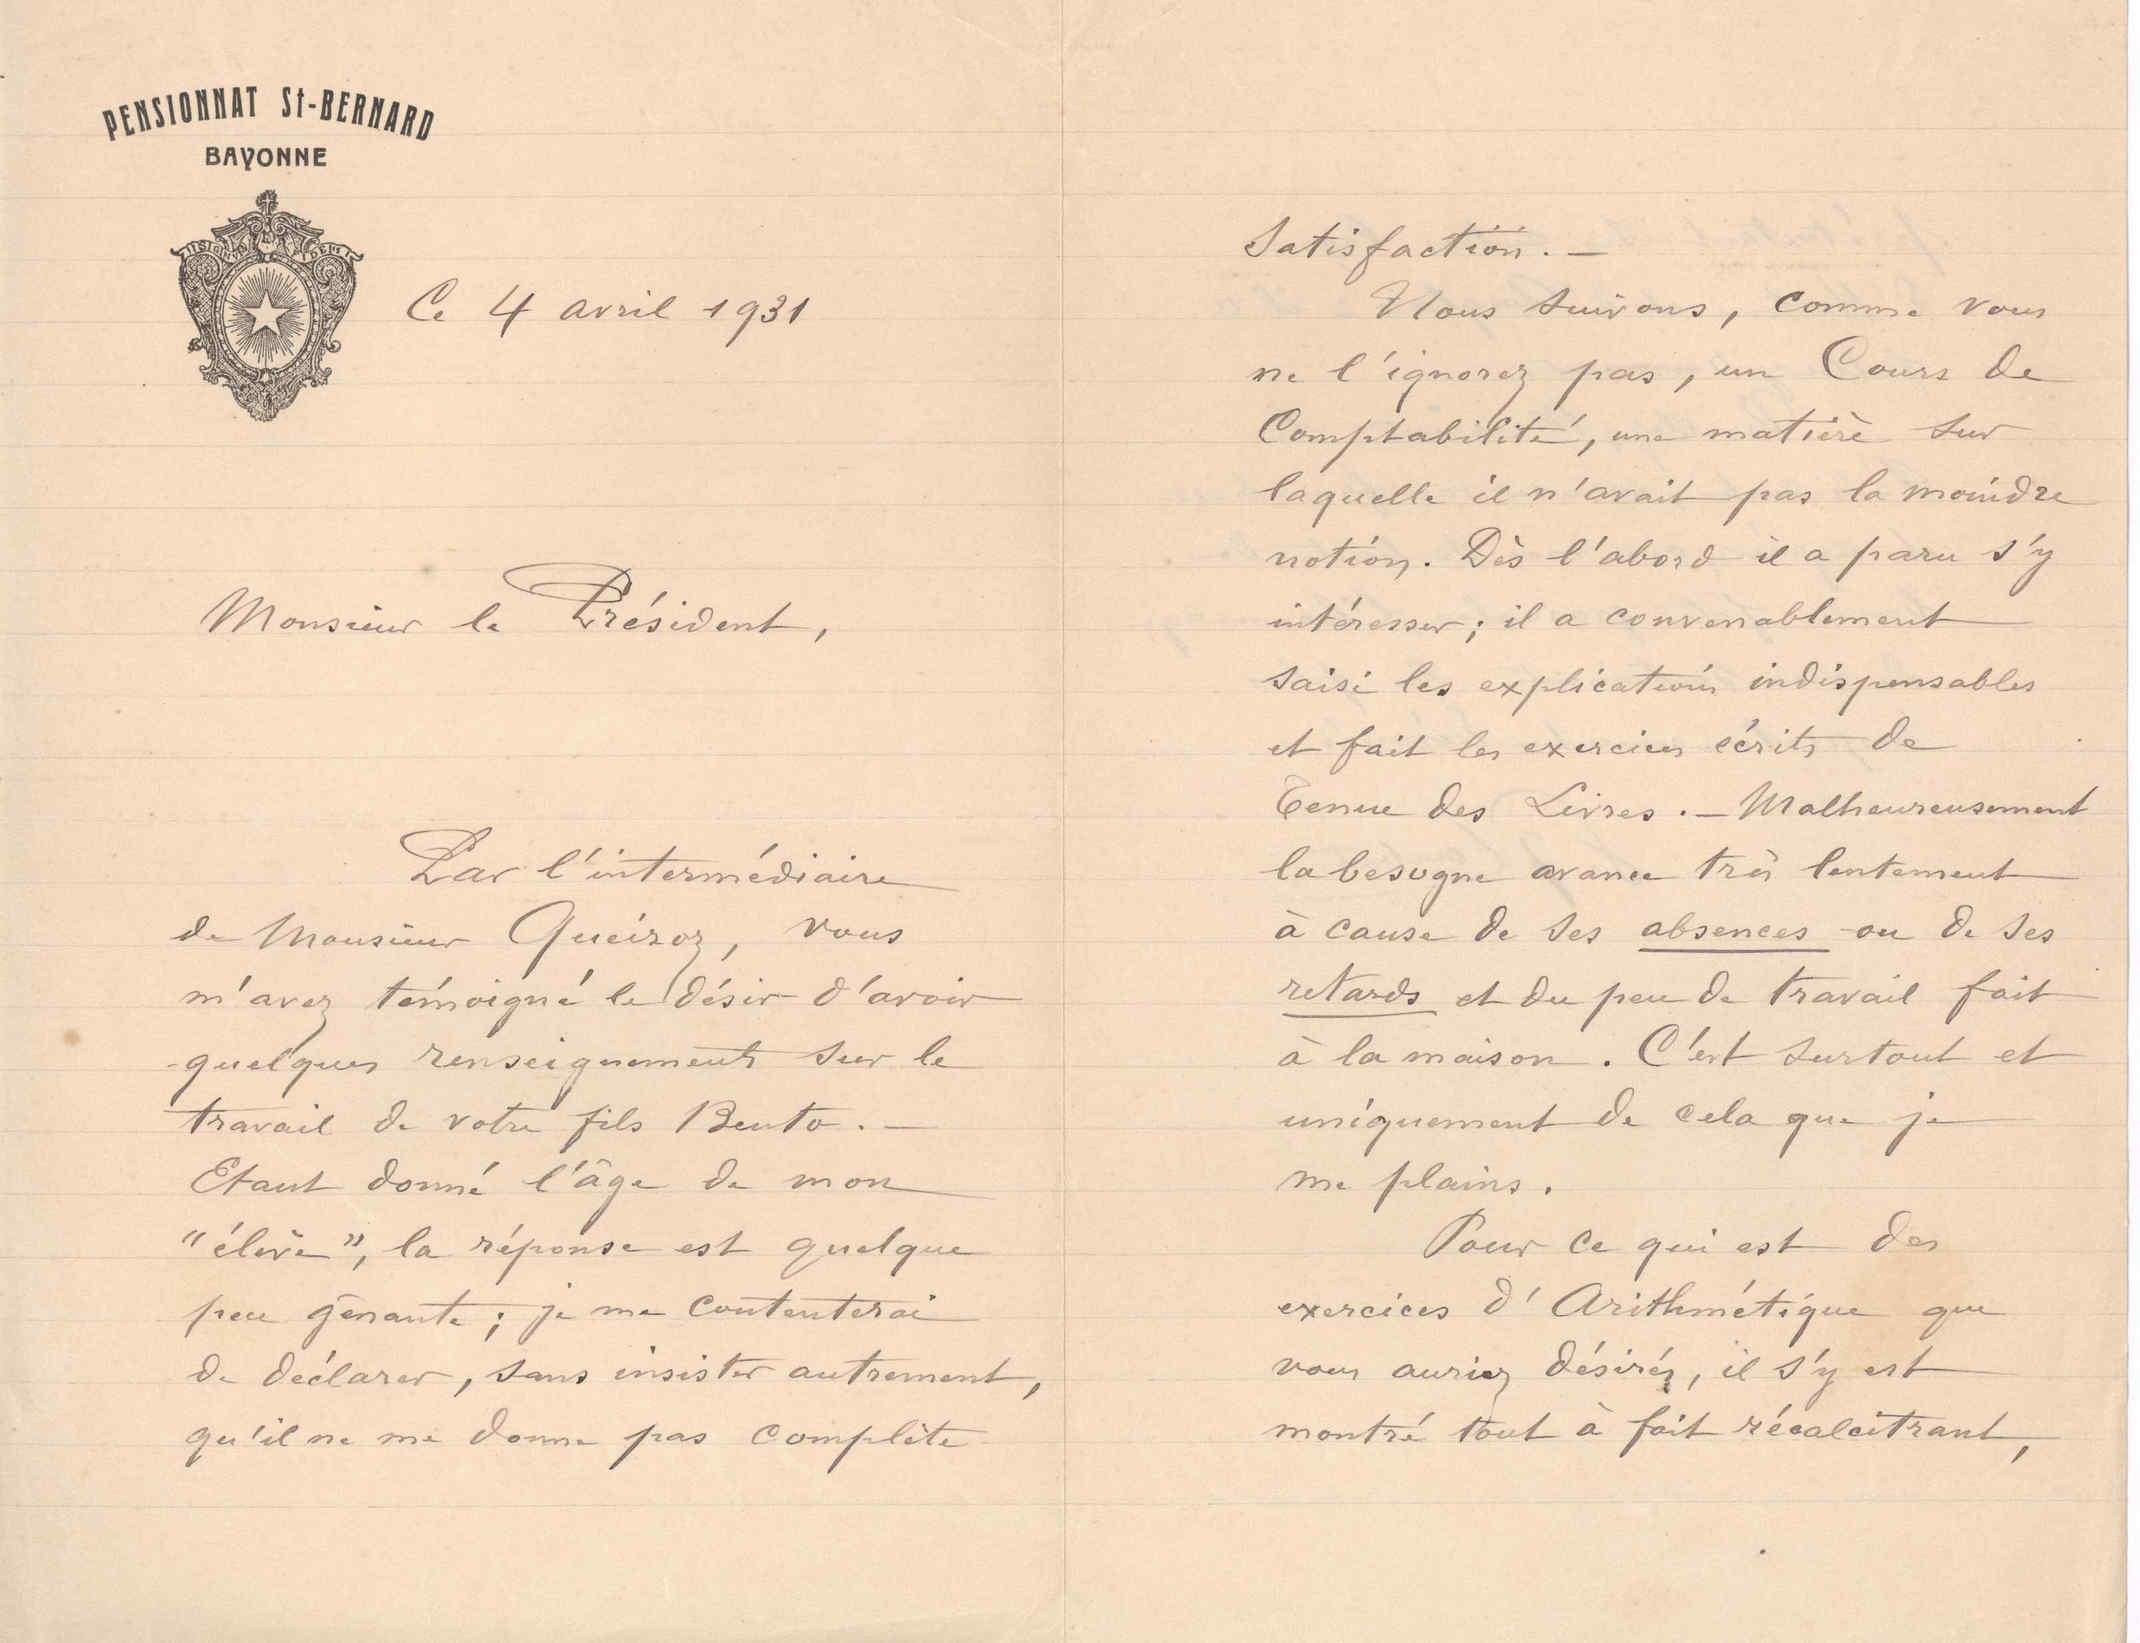 PENSIONNAT St-BERNARD
BAYONNE
Ce 4 avril 1931
Monsieur le Président,
Par l'intermédiaire
de Monsieur Queiroz, vous
m'avez témoigné le désir d'avoir
quelques renseignements sur le
travail de votre fils Bento. —
Etant donné l'âge de mon
"élève", la réponse est quelque
peu gênante ; je me contenterai
de déclarer, sans insister autrement,
qu'il ne me donne pas complète
satisfaction. —
Nous suivons, comme vous
ne l'ignorez pas, un Cours de
Comptabilité, une matière sur
laquelle il n'avait pas la moindre
notion. Dès l'abord il a paru s'y
intéresser ; il a convenablement
saisi les explications indispensables
et fait les exercices écrits de
Tenue des Livres. — Malheureusement
la besogne avance très lentement
à cause de ses absences ou de ses
retards et du peu de travail fait
à la maison. C'est surtout et
uniquement de cela que je
me plains.
Pour ce qui est des
exercices d'Arithmétique que
vous auriez désirés, il s'y est
montré tout à fait récalcitrant,